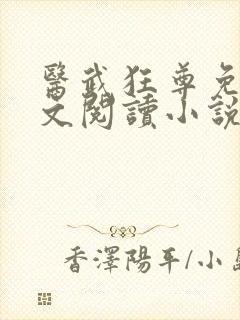 醫武狂尊免
文閱讀小說
香澤陽平/小島